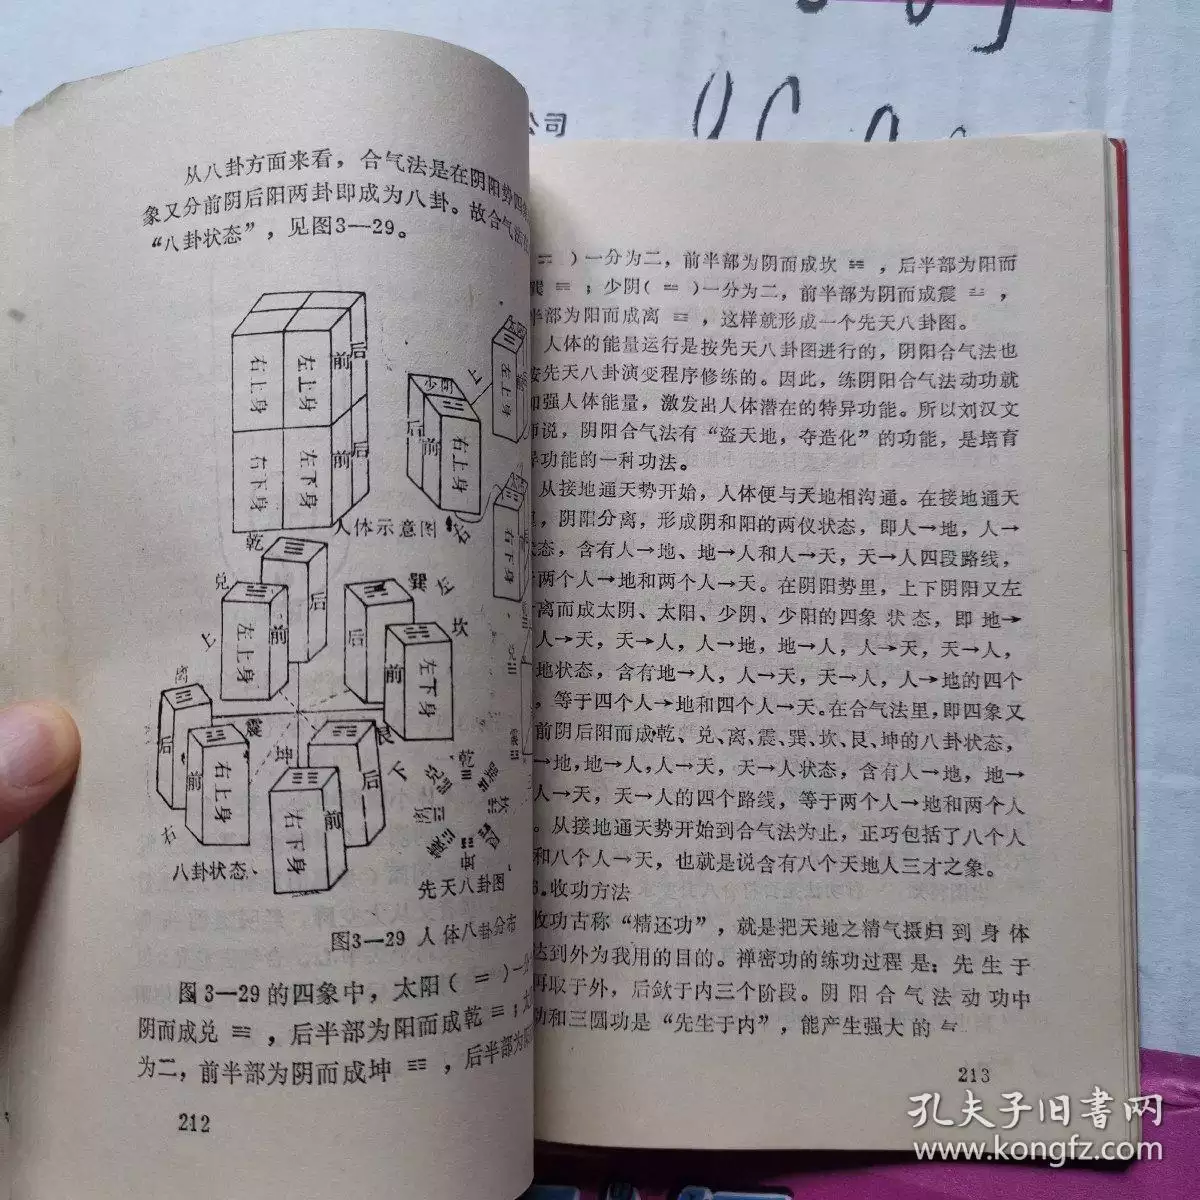 从八卦方面来看，合气法是在阴阳势四象
象又分前阴后阳两卦即成为八卦。故合气法
“八卦状态”，见图3—29。
右上身
左上身
前
后
右下身
左下身
前
后
人体示意图
少阴
后
前
右上身
左上身
右下身
乾
兑
上
前
后
左上身
巽
坎
后
前
左下身
离
震
后
前
右上身
右
坤
艮
后
前
下
右下身
八卦状态
乾
兑
巽
坎
艮
坤
先天八卦图
图3—29 人体八卦分布
图3—29的四象中，太阳（ ⚌ ）一分
阴而成兑 ☱ ，后半部为阳而成乾 ☰ ；太
为二，前半部为阴而成坤 ☷ ，后半部为阳
212
）一分为二，前半部为阴而成坎 ☵ ，后半部为阳而
震 ；少阴（ ⚍ ）一分为二，前半部为阴而成震 ☳ ，
半部为阳而成离 ☲ ，这样就形成一个先天八卦图。
人体的能量运行是按先天八卦图进行的，阴阳合气法也
按先天八卦演变程序修练的。因此，练阴阳合气法动功就
加强人体能量，激发出人体潜在的特异功能。所以刘汉文
师说，阴阳合气法有“盗天地，夺造化”的功能，是培育
异功能的一种功法。
从接地通天势开始，人体便与天地相沟通。在接地通天
，阴阳分离，形成阴和阳的两仪状态，即人→地，人→
状态，含有人→地、地→人和人→天，天→人四段路线，
两个人→地和两个人→天。在阴阳势里，上下阴阳又左
离而成太阴、太阳、少阴、少阳的四象状态，即地→
人→天，天→人，人→地，地→人，人→天，天→人，
地状态，含有地→人，人→天，天→人，人→地的四个
，等于四个人→地和四个人→天。在合气法里，即四象又
前阴后阳而成乾、兑、离、震、巽、坎、艮、坤的八卦状态，
→地，地→人，人→天，天→人状态，含有人→地，地→
人→天，天→人的四个路线，等于两个人→地和两个人
。从接地通天势开始到合气法为止，正巧包括了八个人
和八个人→天，也就是说含有八个天地人三才之象。
收功方法
收功古称“精还功”，就是把天地之精气摄归到身体
达到外为我用的目的。禅密功的练功过程是：先生于
再取于外，后敛于内三个阶段。阴阳合气法动功中
动和三圆功是“先生于内”，能产生强大的气
213
公司
孔夫子旧书网
www.kongfz.com